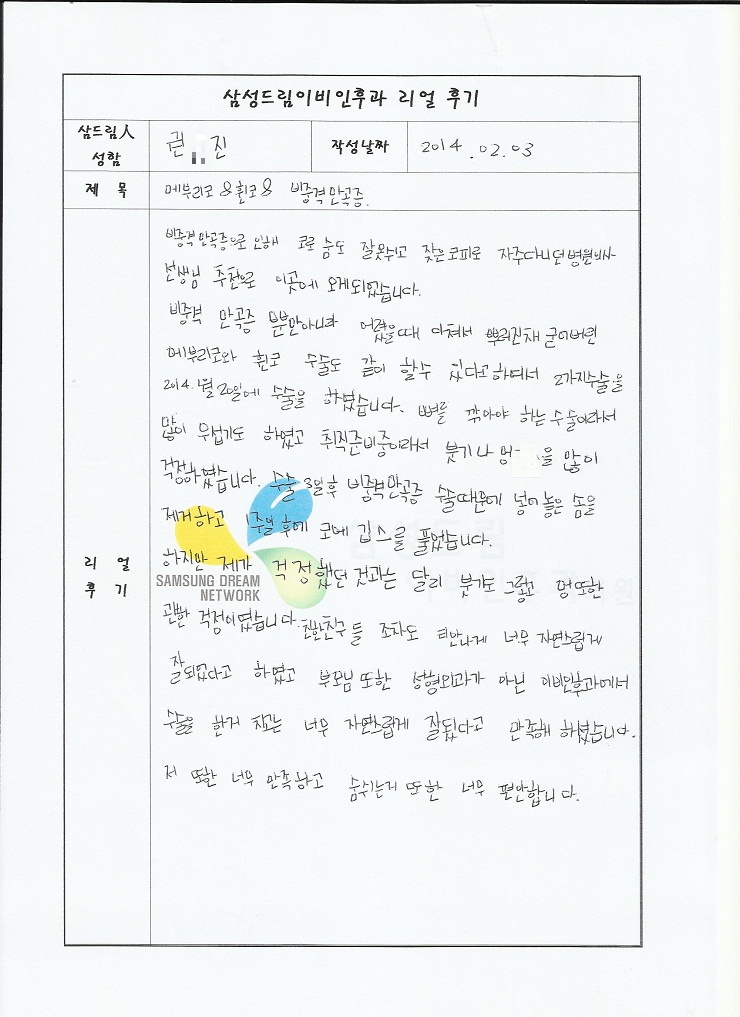 삼성드림이비인후과 리얼 후기
삼드림人
성함
권 진
작성날짜
2014.02.03
제 목
메부리코 & 휜코 & 비중격만곡증.
비중격만곡증으로 인해 코로 숨도 잘못쉬고 잦은코피로 자주다니던병원의사
선생님 추천으로 이곳에 오게되었습니다.
비중격 만곡증 뿐만아니라 어렸을때 다쳐서 뿌러진채 굳어버린
메부리코와 휜코 수술도 같이 할수 있다고하여서 2가지수술을
2014.1월 20일에 수술을 하였습니다. 뼈를 깎아야 하는 수술이라서
많이 무섭기도 하였고 취직준비중이라서 붓기나 멍 을 많이
걱정하였습니다. 수술 3일후 비중격만곡증 수술때문에 넣어놓은 솜을
제거하고 1주일 후에 코에 깁스를 풀었습니다.
하지만 제가 걱정했던 것과는 달리 붓기도 그렇고 멍또한
괜한 걱정이였습니다. 친한친구들 조차도 티안나게 너무 자연스럽게
잘되었다고 하였고 부모님 또한 성형외과가 아닌 이비인후과에서
수술을 한거 치고는 너무 자연스럽게 잘됬다고 만족해 하셨습니다.
저 또한 너무 만족하고 숨쉬는거 또한 너무 편안합니다.
리 얼
후 기
SAMSUNG DREAM
NETWORK